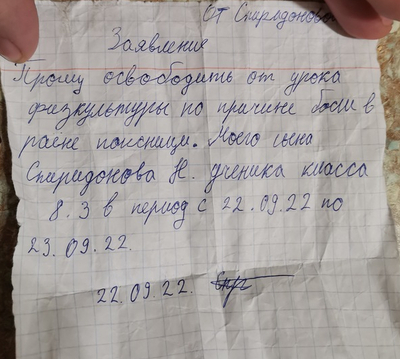 От Спиридоновой
Заявление
Прошу освободить от урока
физкультуры по причине боли в
раене поксници. Моего сына
Спиридонова Н. ученика класса
8.3 в период с 22.09.22 по
23.09.22.
22.09.22. Спр